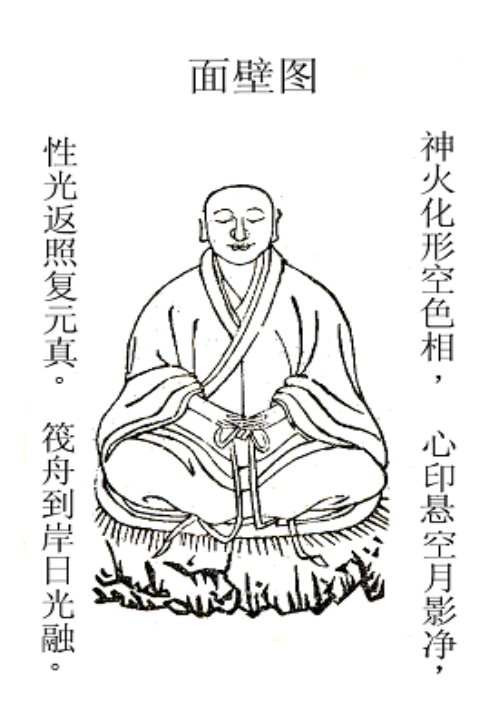 面壁图
神火化形空色相，
性光返照复元真。
心印悬空月影净，
筏舟到岸日光融。